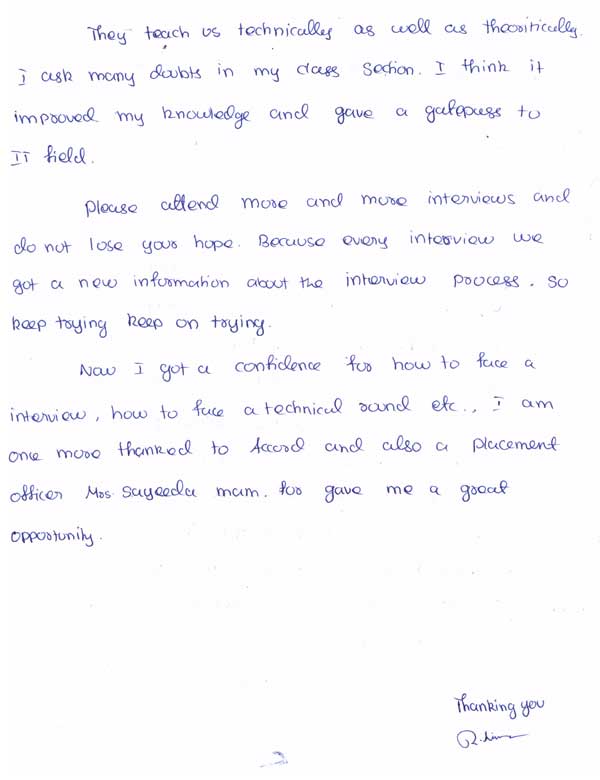 They teach us technically as well as theoritically.
I ask many doubts in my class section. I think it
improved my knowledge and gave a gatepass to
IT field.
Please attend more and more interviews and
do not lose your hope. Because every interview we
got a new information about the interview process. so
keep trying keep on trying.
Now I got a confidence for how to face a
interview, how to face a technical round etc., I am
one more thanked to Accord and also a placement
officer Mrs. Sayeeda mam. for gave me a great
opportunity.
Thanking you